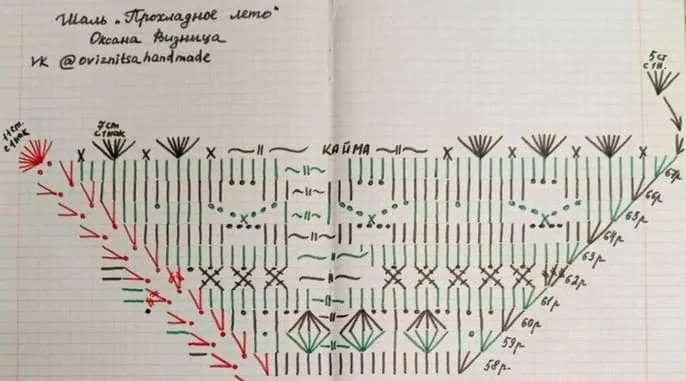 Шаль „Прохладное лето"
Оксана Визница
VK @oviznitsa_handmade
5 ст
с 1 н.
11 ст.
с 1 нак
7 ст
с 1 нак
КАЙМА
67р
66р.
65р.
64р.
63р.
62р.
61р.
60р.
59р.
58р.